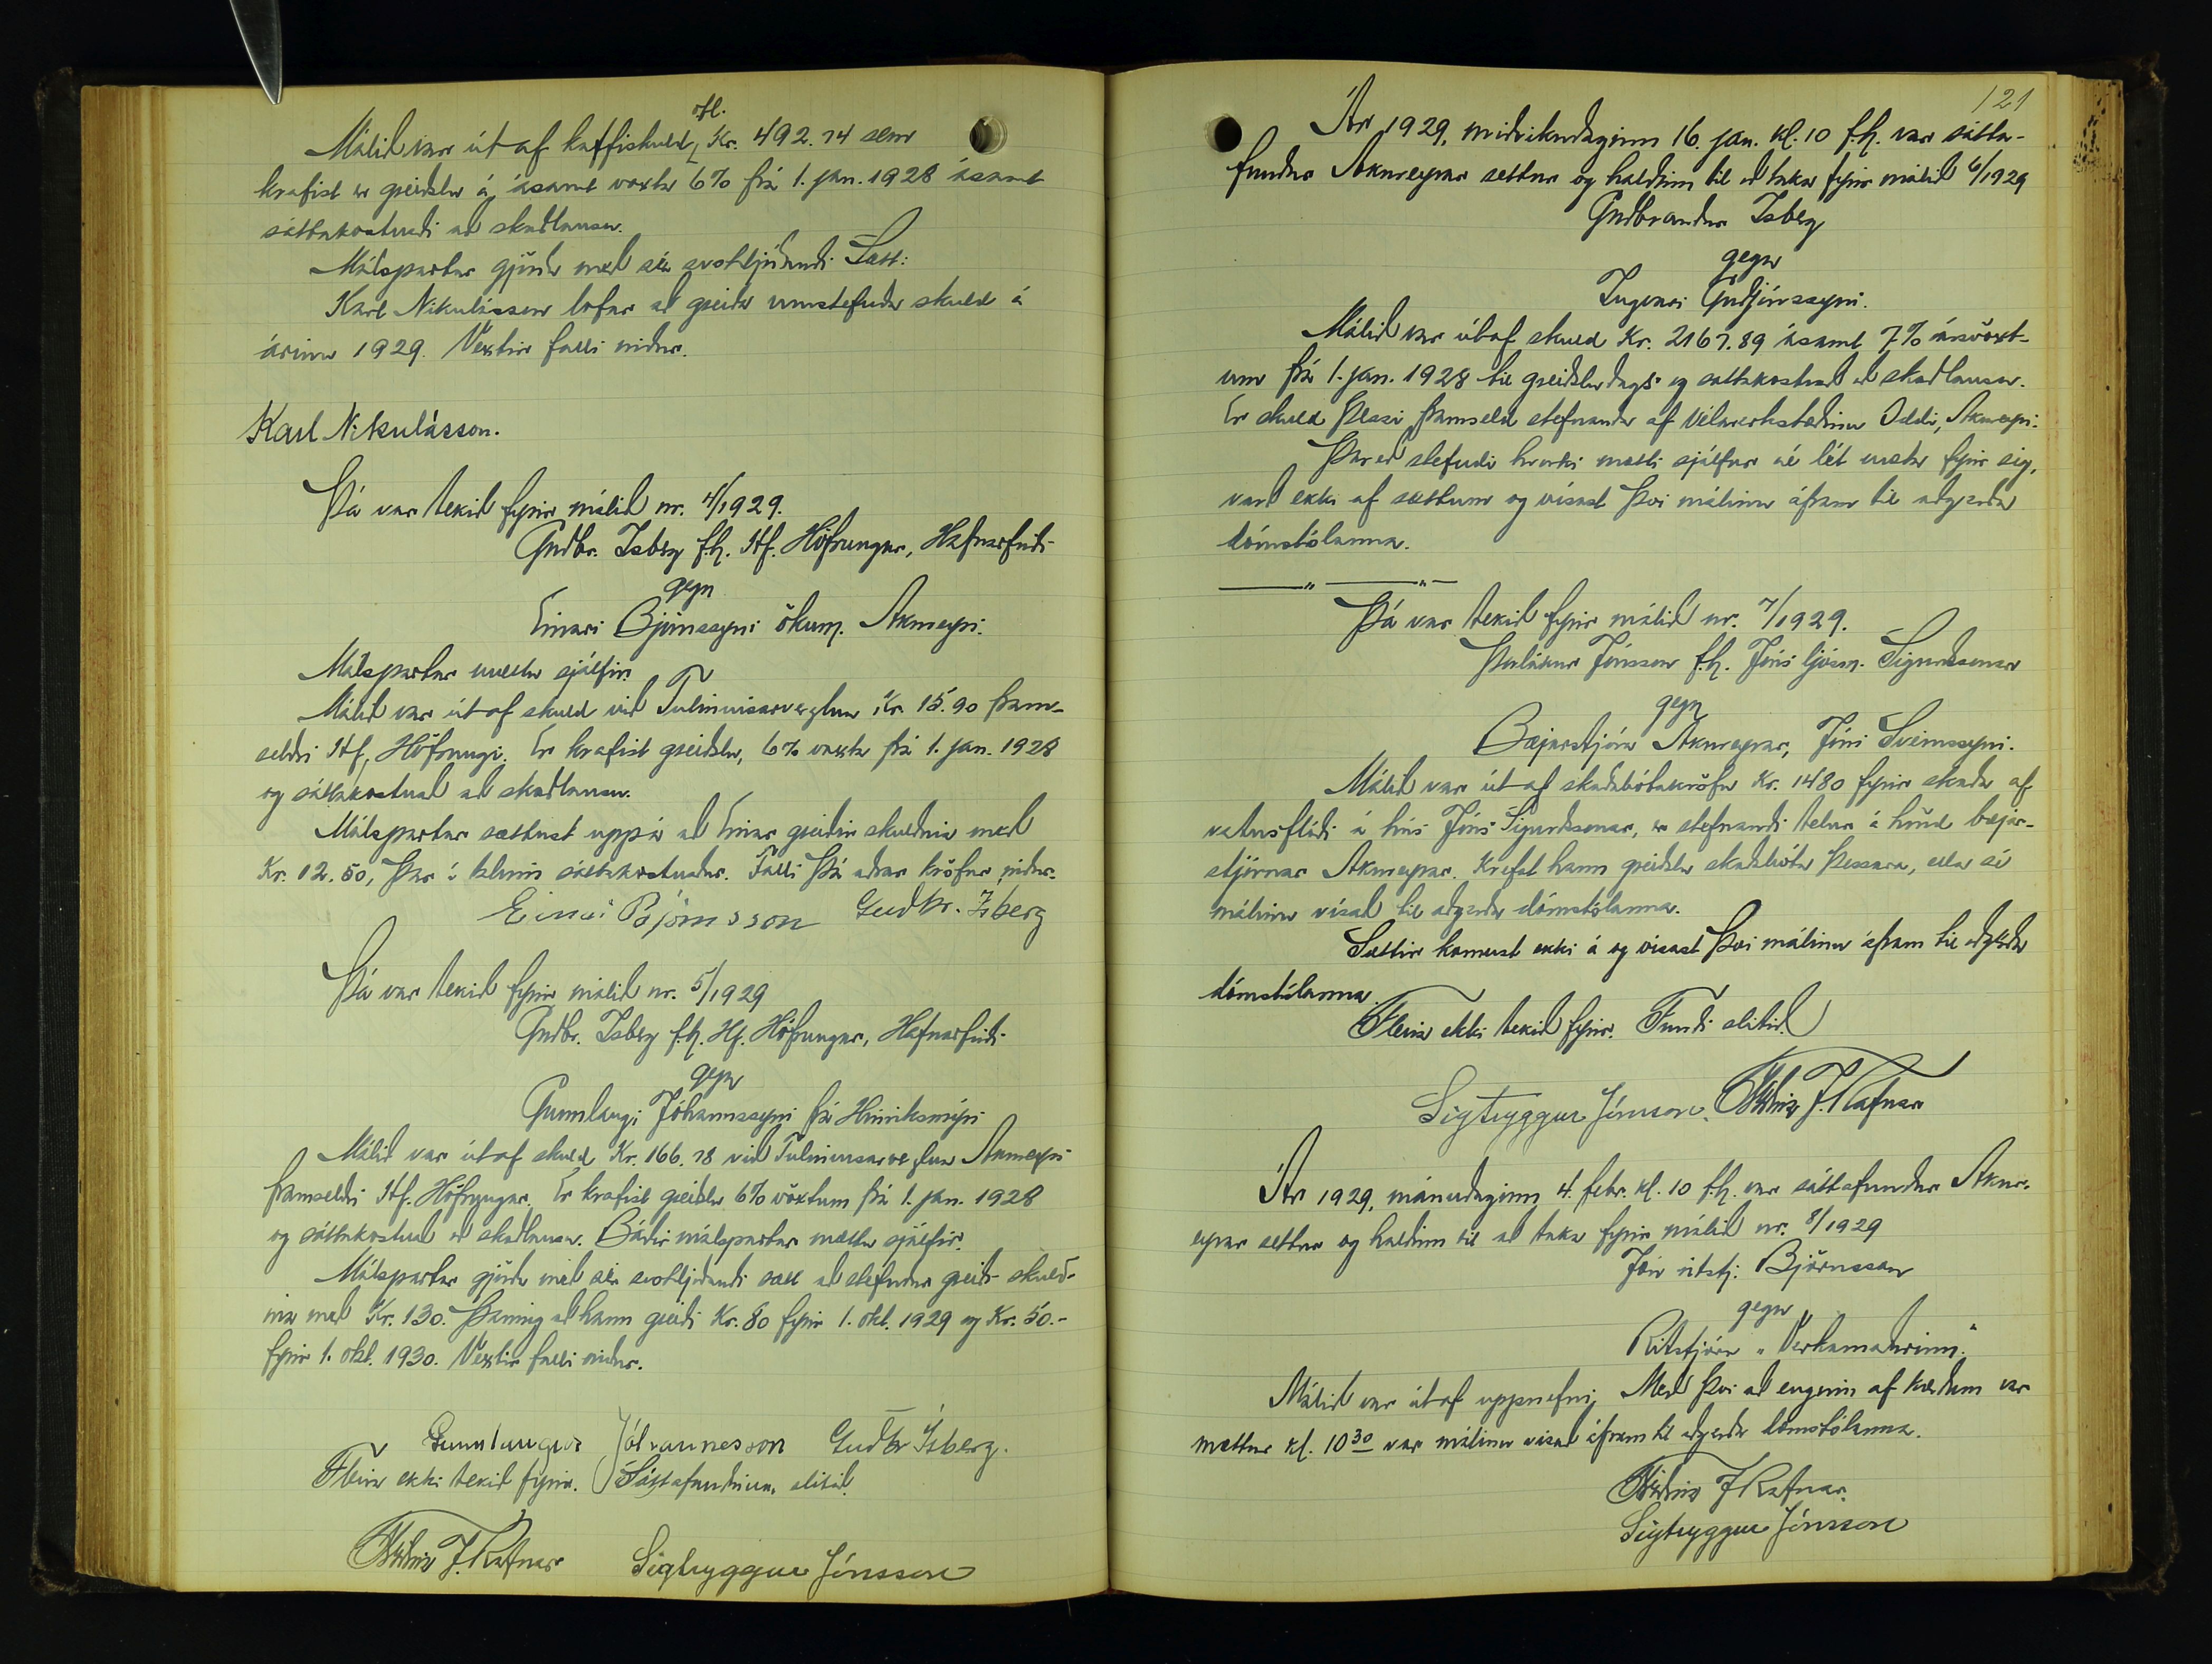 ofl.
Málið var út af kaffiskuld, Kr. 492.74 sem
krafist er greiðslu á, ásamt vöxtu 6% frá 1. jan. 1928 ásamt
sáttakostnaði að skaðlausu.
Málspartar gjörðu með sér svohljóðandi Sætt:
Karl Nikulásson lofar að greiða umstefnda skuld á
árinu 1929. Vextir falli niður.
Karl Nikulásson.
Þá var tekið fyrir málið nr. 4/1929.
Guðbr. Isberg f.h. Hf. Höfrungur, Hafnarfirði
gegn
Einari Björnssyni ökum. Akureyri.
Málspartar mættu sjálfir.
Málið var út af skuld við Tuliniusarverzlun Kr. 15.90 fram-
seldri Hf. Höfrungi. Er krafist greiðslu, 6% vaxta frá 1. jan. 1928
og sáttakostnað að skaðlausu.
Málspartar sættust uppá að Einar greiðir skuldina með
Kr. 12.50, þar í talinn sáttakostnaður. Falli þá aðrar kröfur niður.
Einar Björnsson Guðbr. Ísberg
Þá var tekið fyrir málið nr. 5/1929
Guðbr. Isberg f.h. Hf. Höfrungur, Hafnarfirði
gegn
Gunnlaugi Jóhannssyni frá Hinriksmýri
Málið var út af skuld Kr. 166.78 við Tuliniusarverzlun Akureyri
framseldri Hf. Höfrungur. Er krafist greiðslu 6% vöxtum frá 1. jan. 1928
og sáttakostnað að skaðlausu. Báðir málspartar mættu sjálfir.
Málspartar gjörðu með sér svohljóðandi sætt að stefndur greiði skuld-
ina með Kr. 130. Þannig að hann greiði Kr. 80 fyrir 1. okt. 1929 og Kr. 50.-
fyrir 1. okt. 1930. Vextir falli niður.
Gunnlaugur Jóhannesson Guðbr Ísberg.
Fleira ekki tekið fyrir. Sáttafundinum slitið.
Friðrik J. Rafnar Sigtryggur Jónsson
121
Ár 1929, miðvikudaginn 16. jan. kl. 10 f.h. var sátta-
fundur Akureyrar settur og haldinn til að taka fyrir málið 6/1929
Guðbrandur Isberg
gegn
Ingvari Guðjónssyni.
Málið var út af skuld Kr. 2167.89 ásamt 7% ársvöxt-
um frá 1. jan. 1928 til greiðsludags og sáttakostnað að skaðlausu.
Er skuld þessi framseld stefnanda af Vélaverkstæðinu Oddi, Akureyri.
Þar eð stefndi hvorki mætti sjálfur né lét mæta fyrir sig,
varð ekki af sættum og vísast því málinu áfram til aðgerða
dómstólanna.
——„——„—
Þá var tekið fyrir málið nr. 7/1929.
Þorlákur Jónsson f.h. Jóns ljósm. Sigurðssonar
gegn
Bæjarstjóra Akureyrar, Jóni Sveinssyni.
Málið var út af skaðabótakröfu Kr. 1480 fyrir skaða af
vatnsflóði á hús Jóns Sigurðssonar, er stefnandi telur á hönd bæjar-
stjórnar Akureyrar. Krefst hann greiðslu skaðabóta þessara, ella sé
málinu vísað til aðgerða dómstólanna.
Sættir komust ekki á og vísast því málinu áfram til aðgerða
dómstólanna.
Fleira ekki tekið fyrir. Fundi slitið.
Sigtryggur Jónsson. Friðrik J. Rafnar
Ár 1929, mánudaginn 4. febr. kl. 10 f.h. var sáttafundur Akur-
eyrar settur og haldinn til að taka fyrir málið nr. 8/1929
Jón ritstj. Björnsson
gegn
Ritstjóra „Verkamaðurinn."
Málið var út af uppnefni. Með því að enginn af kærðum var
mættur kl. 10 30 var málinu vísað áfram til aðgerða dómstólanna.
Friðrik J Rafnar.
Sigtryggur Jónsson